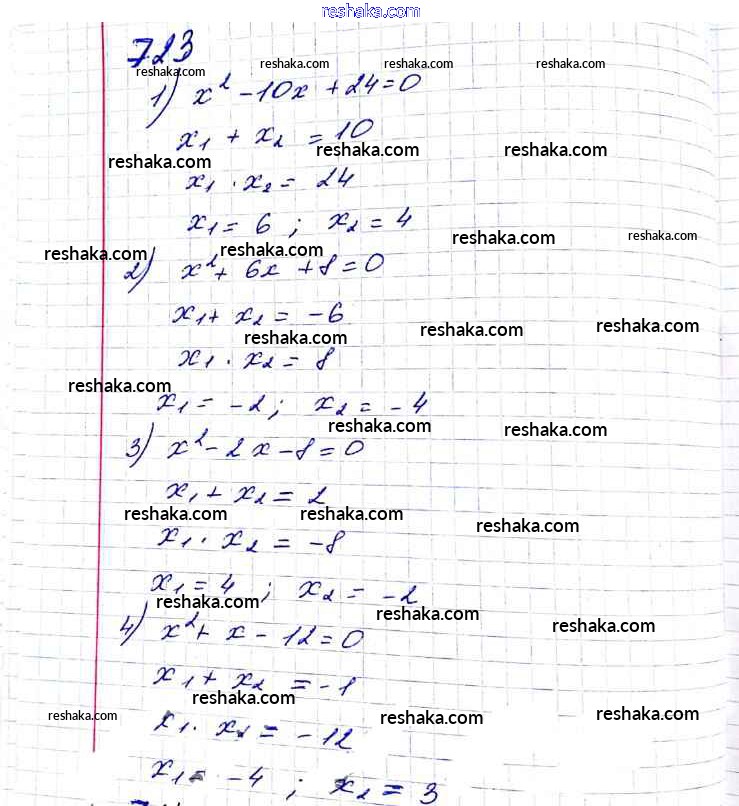 reshaka.com
723
reshaka.com reshaka.com reshaka.com reshaka.com
1) x² - 10x + 24 = 0
x₁ + x₂ = 10
reshaka.com reshaka.com reshaka.com
x₁ · x₂ = 24
x₁ = 6 ; x₂ = 4
reshaka.com reshaka.com reshaka.com reshaka.com
2) x² + 6x + 8 = 0
x₁ + x₂ = -6
reshaka.com reshaka.com reshaka.com
x₁ · x₂ = 8
reshaka.com
x₁ = -2 ; x₂ = -4
reshaka.com reshaka.com
3) x² - 2x - 8 = 0
x₁ + x₂ = 2
reshaka.com reshaka.com reshaka.com
x₁ · x₂ = -8
x₁ = 4 ; x₂ = -2
reshaka.com reshaka.com reshaka.com
4) x² + x - 12 = 0
x₁ + x₂ = -1
reshaka.com reshaka.com reshaka.com reshaka.com
x₁ · x₂ = -12
x₁ = -4 ; x₂ = 3